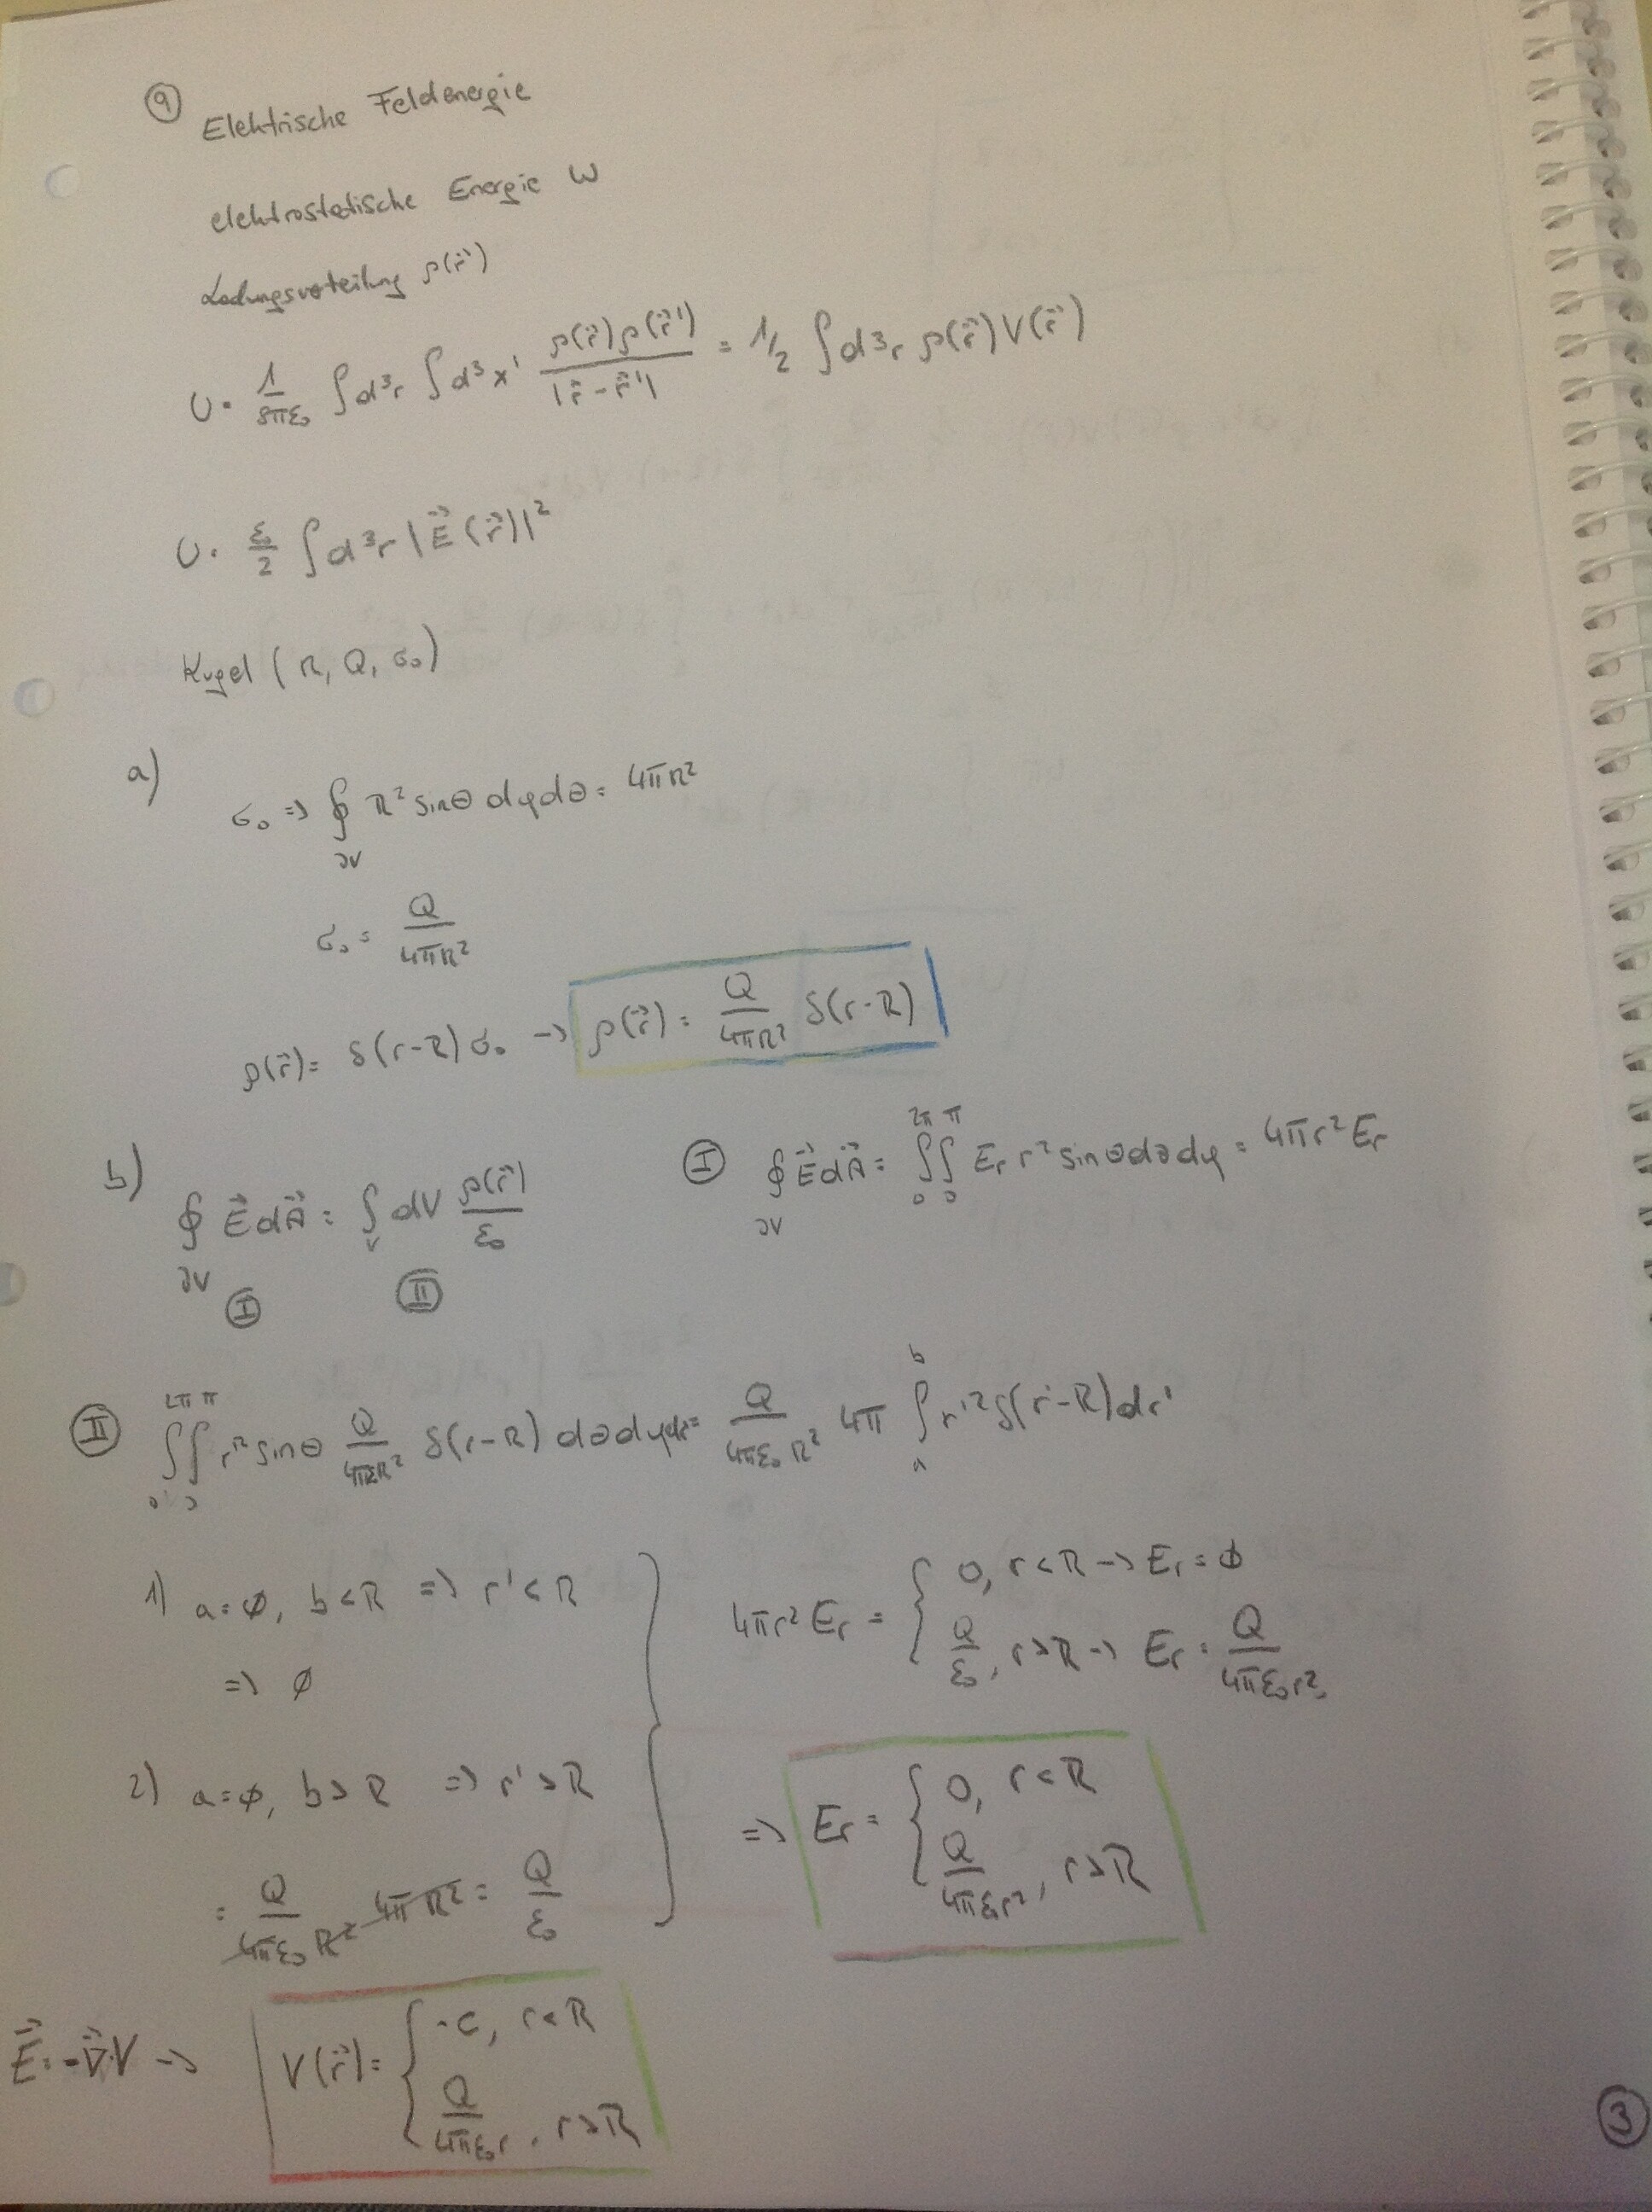 ⑨ Elektrische Feldenergie
elektrostatische Energie W
Ladungsverteilung ρ(r⃗)
U = 1/(8πε₀) ∫d³r ∫d³x' ρ(r⃗)ρ(r⃗')/|r⃗-r⃗'| = 1/2 ∫d³r ρ(r⃗)V(r⃗)
U = ε₀/2 ∫d³r |E⃗(r⃗)|²
Kugel (R, Q, σ₀)
a)
σ₀ => ∮_∂V R² sinθ dφdθ = 4πR²
σ₀ = Q/(4πR²)
ρ(r⃗) = δ(r-R)σ₀ -> ρ(r⃗) = Q/(4πR²) δ(r-R)
b) ∮_∂V E⃗dA⃗ = ∫_V dV ρ(r⃗)/ε₀
Ⓘ Ⅱ
Ⓘ ∮_∂V E⃗dA⃗ = ∫₀^2π ∫₀^π Er r² sinθdθdφ = 4πr²Er
Ⅱ ∫₀^2π ∫₀^π r² sinθ Q/(4πR²) δ(r-R) dθdφdr = Q/(4πε₀R²) 4π ∫_a^b r'² δ(r'-R)dr'
1) a=∅, b<R => r'<R
=> ∅
2) a=∅, b>R => r'>R
= Q/(4πε₀R²) 4πR² = Q/ε₀
4πr²Er = { 0, r<R -> Er = ∅
Q/ε₀, r>R -> Er = Q/(4πε₀r²)
=> Er = { 0, r<R
Q/(4πε₀r²), r>R
E⃗ = -∇⃗·V -> V(r⃗) = { -c, r<R
Q/(4πε₀r), r>R
③